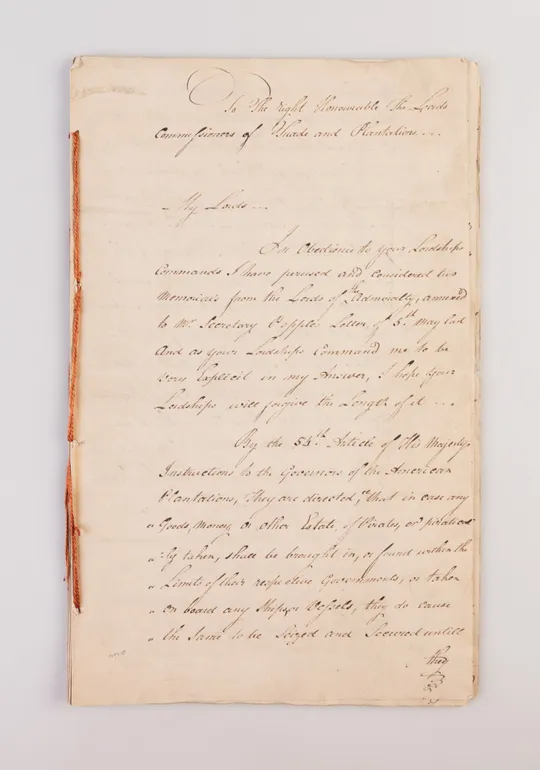 To The Right Honourable The Lords
Commissioners of Trade and Plantations...
My Lords...
In Obedience to your Lordships
Commands I have perused and considered two
Memorials from the Lords of the Admiralty, annexed
to Mr. Secretary Popples Letter of 5th May last
And as your Lordships Command me to be
very Explicit in my Answer, I hope your
Lordships will forgive the Length of it...
By the 54th Article of His Majestys
Instructions to the Governors of the American
Plantations, They are directed, "that in case any
" Goods, Money, or other Estate, of Pirates, or piratical
" ly taken, shall be brought in, or found within the
" Limits of their respective Governments, or taken
" on board any Ships or Vessels, they do cause
" the Same to be Seized and Secured untill
they